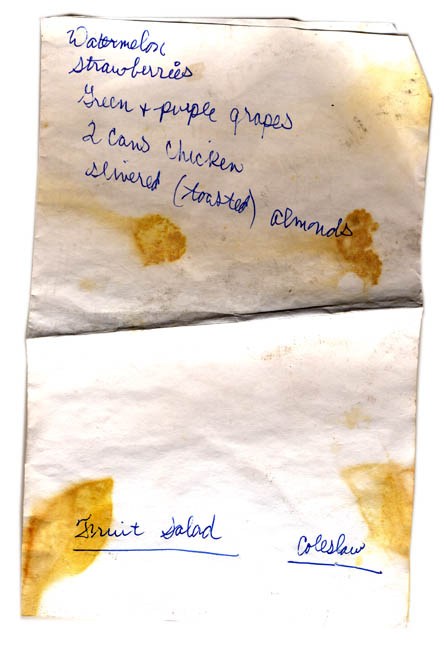 Watermelon
Strawberries
Green + purple grapes
2 cans chicken
slivered (toasted) almonds
Fruit Salad
Coleslaw